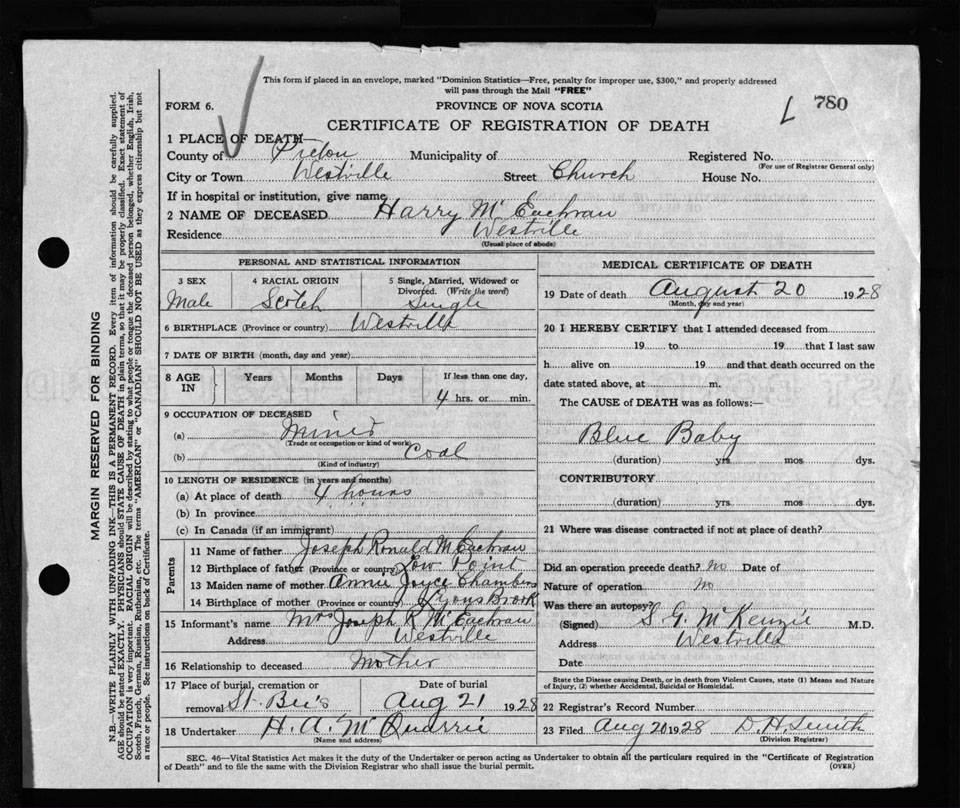 This form if placed in an envelope, marked "Dominion Statistics—Free, penalty for improper use, $300," and properly addressed
will pass through the Mail "FREE"
FORM 6.
PROVINCE OF NOVA SCOTIA
L 780
CERTIFICATE OF REGISTRATION OF DEATH
1 PLACE OF DEATH
County of Pictou Municipality of Registered No.
(For use of Registrar General only)
City or Town Westville Street Church House No.
If in hospital or institution, give name
2 NAME OF DECEASED Harry McEachran
Residence Westville
(Usual place of abode)
PERSONAL AND STATISTICAL INFORMATION
3 SEX 4 RACIAL ORIGIN 5 Single, Married, Widowed or Divorced. (Write the word)
Male Scotch Single
6 BIRTHPLACE (Province or country) Westville
7 DATE OF BIRTH (month, day and year)
8 AGE IN Years Months Days If less than one day,
4 hrs. or min.
9 OCCUPATION OF DECEASED
(a) Miner
(Trade or occupation or kind of work)
(b) Coal
(Kind of industry)
10 LENGTH OF RESIDENCE (in years and months)
(a) At place of death 4 hours
(b) In province
(c) In Canada (if an immigrant)
Parents
11 Name of father Joseph Ronald McEachran
12 Birthplace of father (Province or country) Low Point
13 Maiden name of mother Annie Joyce Chambers
14 Birthplace of mother (Province or country) Lyons Brook
15 Informant's name Mrs Joseph R McEachran
Address Westville
16 Relationship to deceased Mother
17 Place of burial, cremation or removal St. Bee's Date of burial Aug 21 1928
18 Undertaker H. A. McQuarrie
(Name and address)
MEDICAL CERTIFICATE OF DEATH
19 Date of death August 20 1928
(Month, day and year)
20 I HEREBY CERTIFY that I attended deceased from
19 to 19 that I last saw
h alive on 19 and that death occurred on the
date stated above, at m.
The CAUSE of DEATH was as follows:—
Blue Baby
(duration) yrs mos dys.
CONTRIBUTORY
(duration) yrs mos dys.
21 Where was disease contracted if not at place of death?
Did an operation precede death? No Date of
Nature of operation No
Was there an autopsy?
(Signed) S G McKenzie M.D.
Address Westville
Date
State the Disease causing Death, or in death from Violent Causes, state (1) Means and Nature
of Injury, (2) whether Accidental, Suicidal or Homicidal.
22 Registrar's Record Number
23 Filed Aug 20 1928 D. H. Smith
(Division Registrar)
SEC. 46—Vital Statistics Act makes it the duty of the Undertaker or person acting as Undertaker to obtain all the particulars required in the "Certificate of Registration
of Death" and to file the same with the Division Registrar who shall issue the burial permit. (OVER)
MARGIN RESERVED FOR BINDING
N.B.—WRITE PLAINLY WITH UNFADING INK—THIS IS A PERMANENT RECORD. Every item of information should be carefully supplied.
AGE should be stated EXACTLY. PHYSICIANS should STATE CAUSE OF DEATH in plain terms, so that it may be properly classified. Exact statement of
OCCUPATION is very important. RACIAL ORIGIN will be described by stating to what people or tongue the deceased person belonged, whether English, Irish,
Scotch, French, German, Russian, Ruthenian, etc. The terms "AMERICAN" or "CANADIAN" SHOULD NOT BE USED as they express citizenship but not
a race or people. See instructions on back of Certificate.